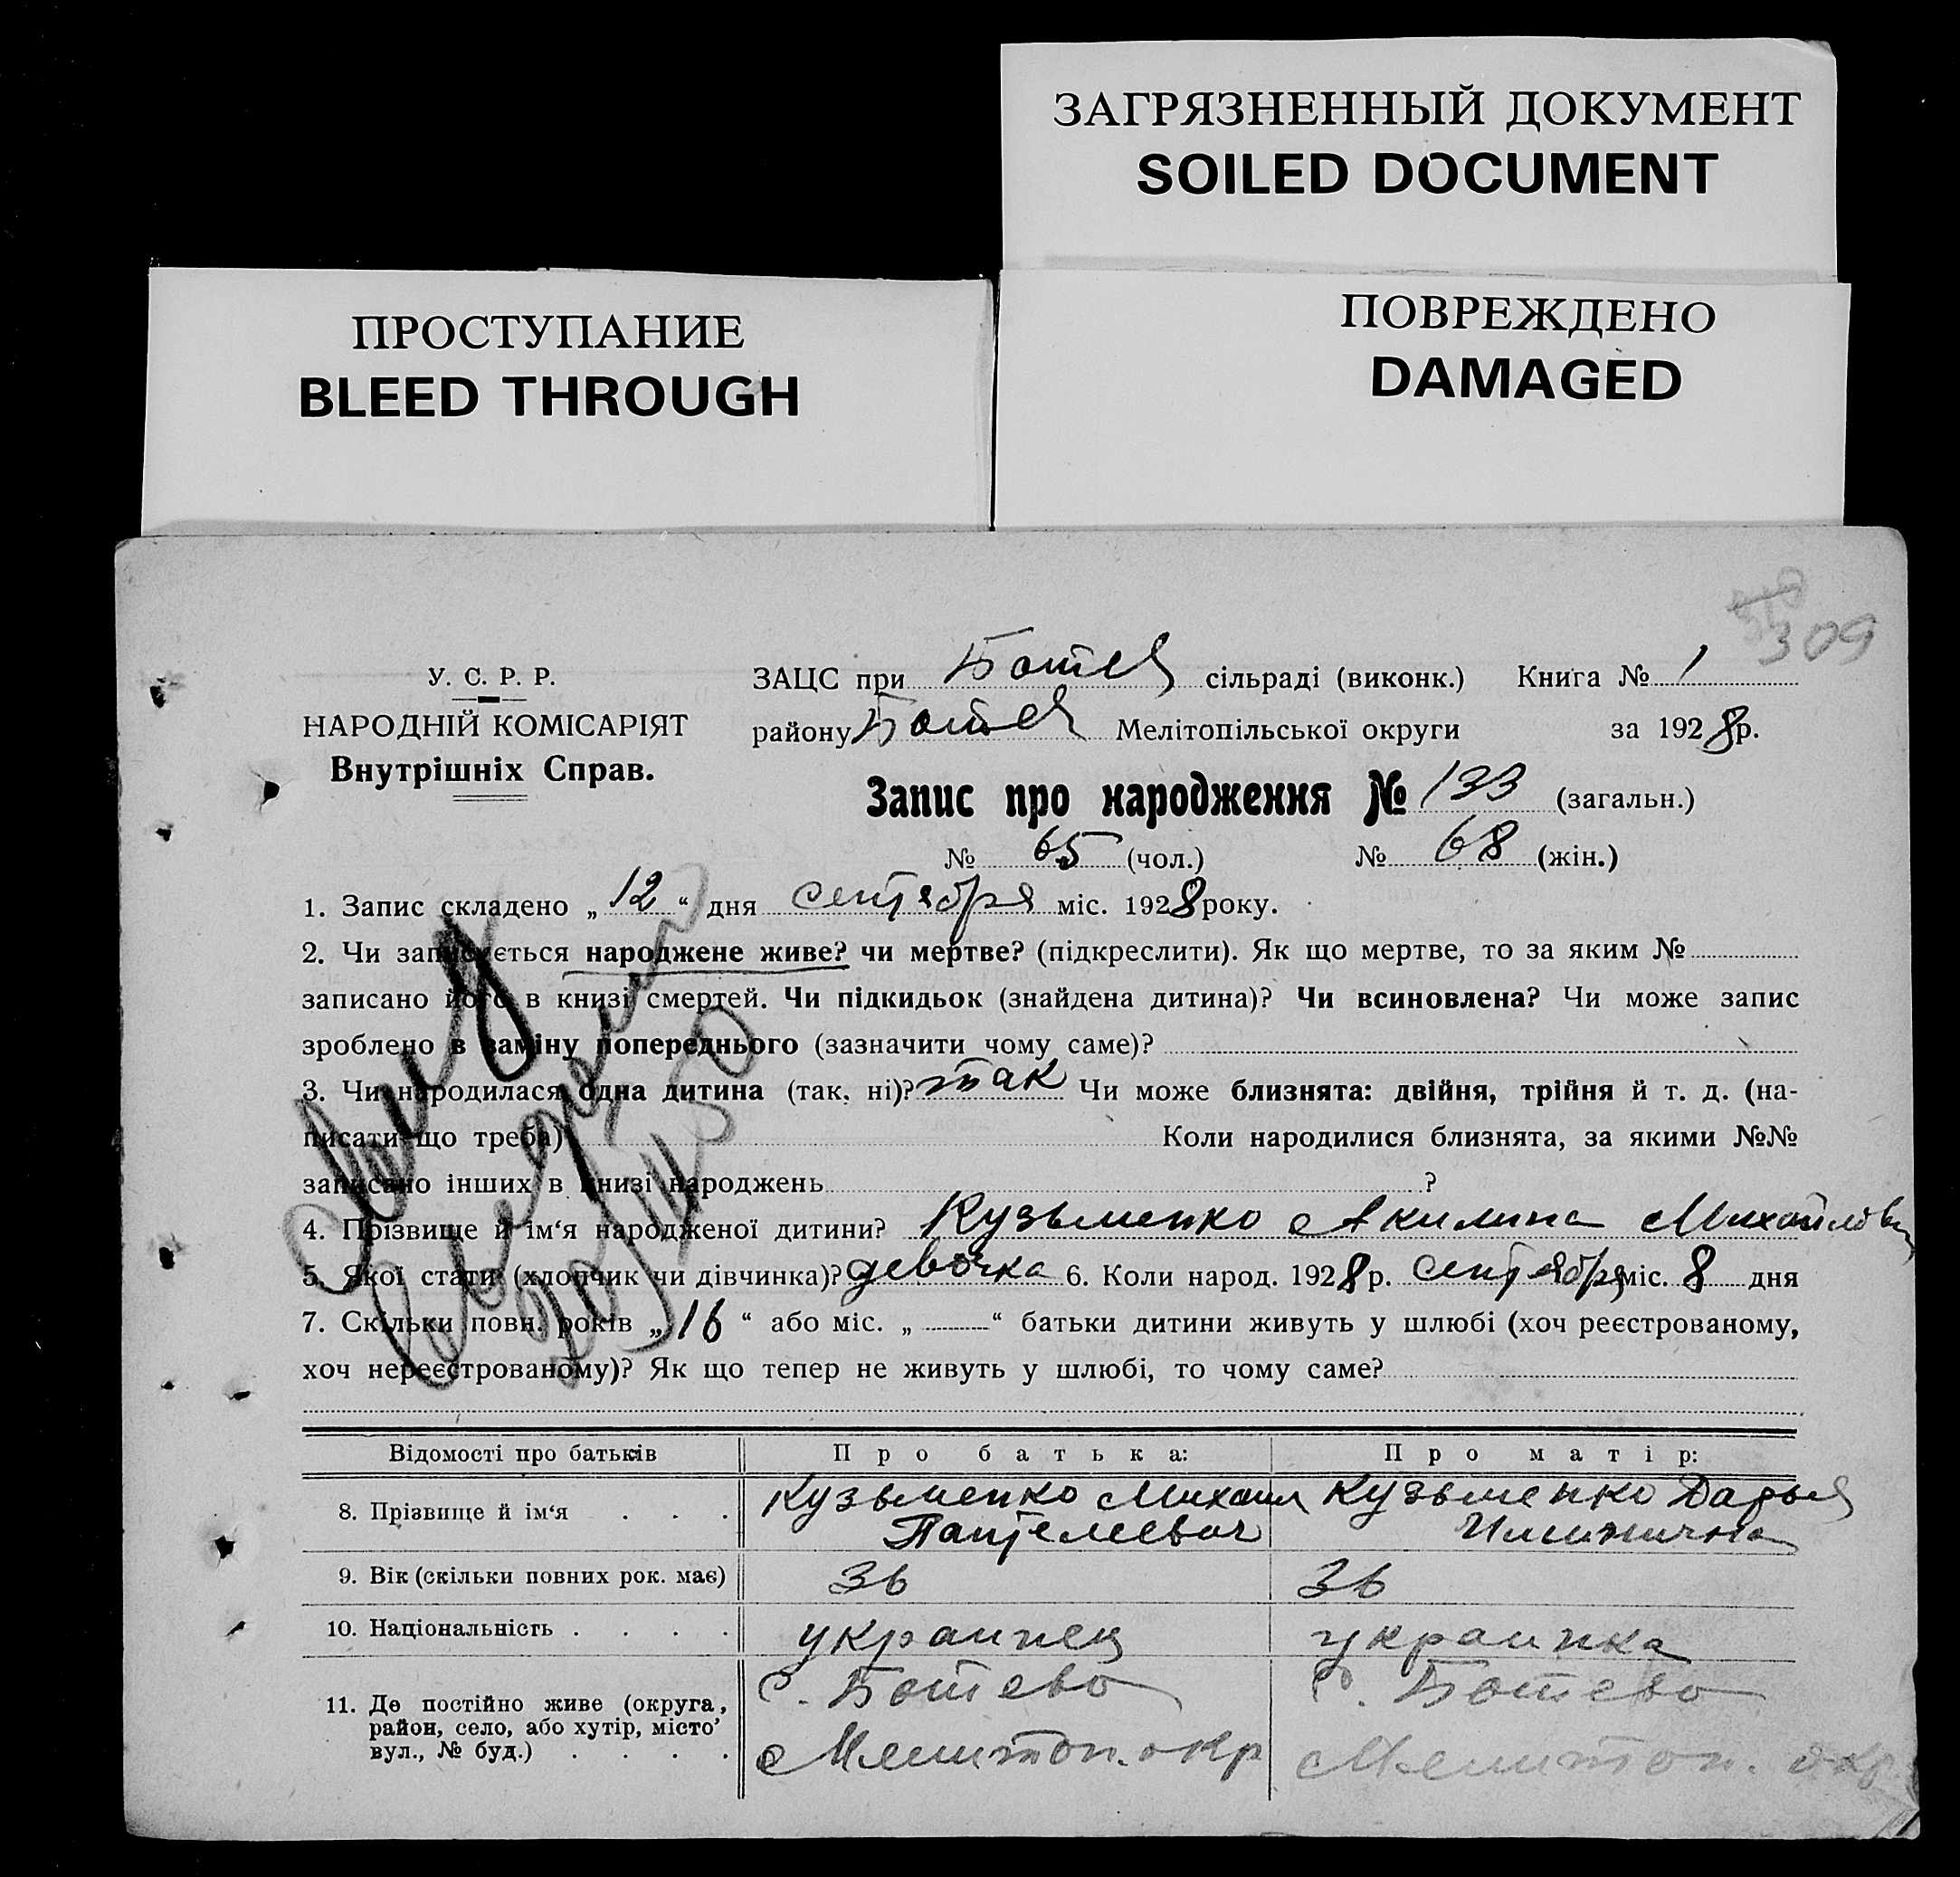 ЗАГРЯЗНЕННЫЙ ДОКУМЕНТ
SOILED DOCUMENT
ПРОСТУПАНИЕ
BLEED THROUGH
ПОВРЕЖДЕНО
DAMAGED
309
У. С. Р. Р.
НАРОДНІЙ КОМІСАРІЯТ
Внутрішніх Справ.
ЗАЦС при Ботев сільраді (виконк.) Книга № 1
району Ботев Мелітопільської округи за 1928р.
Запис про народження № 133 (загальн.)
№ 65 (чол.) № 68 (жін.)
1. Запис складено „ 12 “ дня сентября міс. 1928 року.
2. Чи записується народжене живе? чи мертве? (підкреслити). Як що мертве, то за яким №
записано його в книзі смертей. Чи підкидьок (знайдена дитина)? Чи всиновлена? Чи може запис
зроблено в заміну попереднього (зазначити чому саме)?
3. Чи народилася одна дитина (так, ні)? так Чи може близнята: двійня, трійня й т. д. (на-
писати що треба) Коли народилися близнята, за якими №№
записано інших в книзі народжень ?
4. Прізвище й ім‘я народженої дитини? Кузьменко Акилина Михайловн
5. Якої стати (хлопчик чи дівчинка)? девочка 6. Коли народ. 1928р. сентября міс. 8 дня
7. Скільки повн. років „ 16 “ або міс. „ “ батьки дитини живуть у шлюбі (хоч реєстрованому,
хоч нереєстрованому)? Як що тепер не живуть у шлюбі, то чому саме?
Відомості про батьків Про батька: Про матір:
8. Прізвище й ім‘я . . . Кузьменко Михаил Кузьменко Дарья
Пантелеевич
9. Вік (скільки повних рок. має) 36 36
10. Національність . . . . украинец украинка
11. Де постійно живе (округа, район, село, або хутір, місто, вул., № буд.) . . . . с. Ботево с. Ботево
Мелитоп. окр Мелитоп. окр.